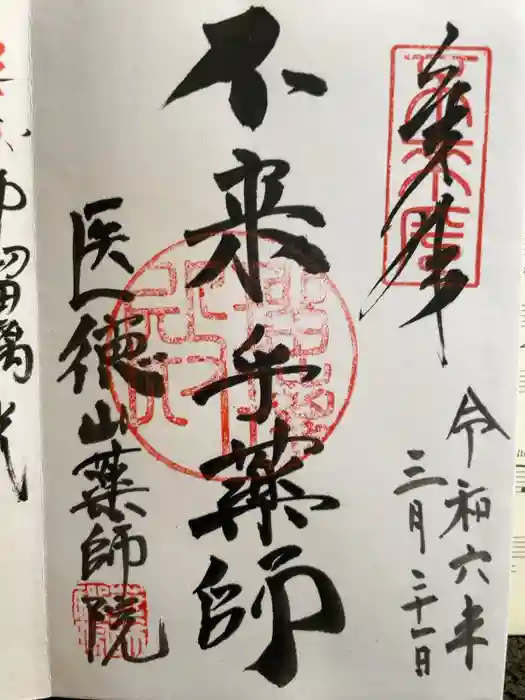 奉拝
令和六年
三月二十一日
不来乎薬師
医徳山薬師院